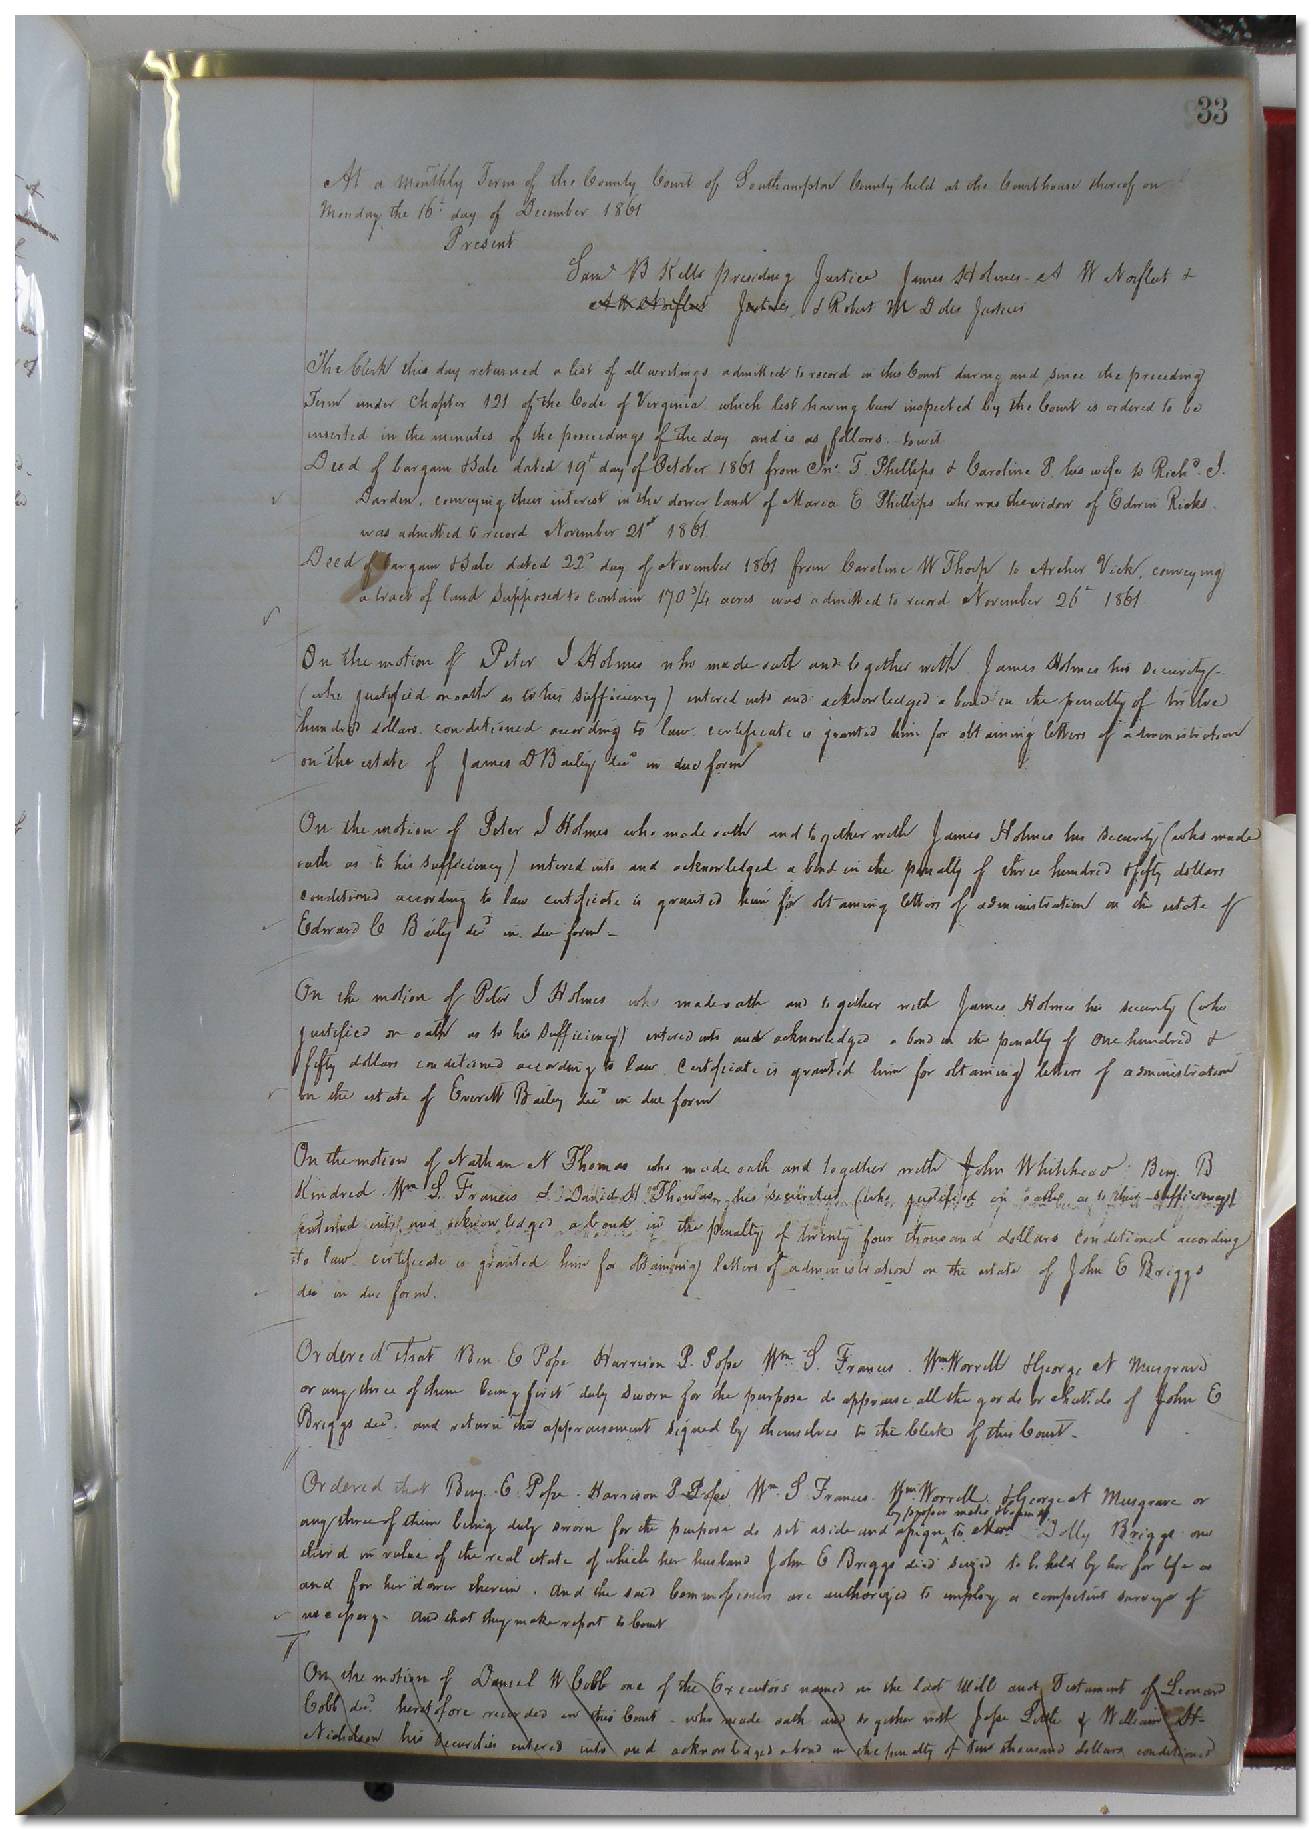 33
At a monthly Term of the County Court of Southampton County held at the Courthouse thereof on
Monday the 16t day of December 1861
Present
Saml B Kello presiding Justice James Holmes A W Norfleet &
A W Norfleet Justices & Robert M Doles Justices
The Clerk this day returned a list of all writings admitted to record in this Court during and since the preceding
Term under Chapter 121 of the Code of Virginia which list having been inspected by the Court is ordered to be
inserted in the minutes of the proceedings of the day and is as follows. towit
Deed of bargain & Sale dated 19t day of October 1861 from Jno T. Phillips & Caroline P. his wife to Richd J.
Darden, conveying their interest in the dower land of Maria E Phillips who was the widow of Edwin Ricks.
was admitted to record November 21st 1861
Deed of bargain & Sale dated 22d day of November 1861 from Caroline W Thorp to Archer Vick, conveying
a tract of land supposed to contain 170 3/4 acres was admitted to record November 26t 1861
On the motion of Peter J Holmes who made oath and together with James Holmes his security
(who justified on oath as to his sufficiency) entered into and acknowledged a bond in the penalty of twelve
hundred dollars conditioned according to law certificate is granted him for obtaining letters of administration
on the estate of James D Bailey decd in due form
On the motion of Peter J Holmes who made oath and together with James Holmes his security (who made
oath as to his sufficiency) entered into and acknowledged a bond in the penalty of three hundred & fifty dollars
conditioned according to law certificate is granted him for obtaining letters of administration on the estate of
Edward C Baily decd in due form -
On the motion of Peter J Holmes who made oath and together with James Holmes his security (who
justified on oath as to his sufficiency) entered into and acknowledged a bond in the penalty of one hundred &
fifty dollars conditioned according to law. Certificate is granted him for obtaining letters of administration
on the estate of Everett Bailey decd in due form
On the motion of Nathan N Thomas who made oath and together with John Whitehead Benj. B
Kindred Wm S. Francis & David H Thomas, his securities (who justified on oath as to their sufficiency)
entered into and acknowledged a bond in the penalty of twenty four thousand dollars conditioned according
to law certificate is granted him for obtaining letters of administration on the estate of John E Briggs
decd in due form.
Ordered that Ben E Pope Harrison P. Pope Wm S. Francis. Wm Worrell & George N Musgrave
or any three of them being first duly sworn for the purpose do appraise all the goods or chattels of John E
Briggs decd. and return the appraisement signed by themselves to the Clerk of this Court -
Ordered that Benj. E. Pope Harrison P Pope Wm S Francis Wm Worrell & George N Musgrave or
by proper metes & bounds
any three of them being duly sworn for the purpose do set aside and assign to Mrs. Dolly Briggs one
third in value of the real estate of which her husband John E Briggs died seized to be held by her for life as
and for her dower therein. And the said Commissioners are authorized to employ a competent surveyor if
necessary. And that they make report to Court
On the motion of Daniel W Cobb one of the Executors named in the Last Will and Testament of Leonard
Cobb decd. heretofore recorded in this Court - who made oath and together with Jesse Little & William H
Nicholson his securities entered into and acknowledged a bond in the penalty of ten thousand dollars conditioned